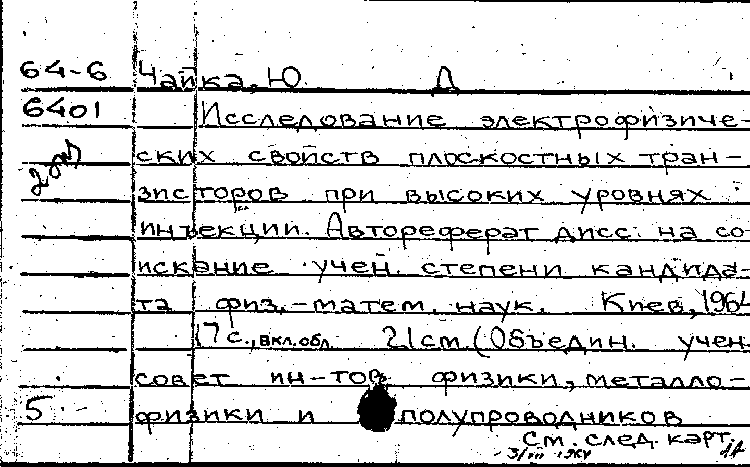 64-6 Чайка, Ю. Д
6401 Исследование электрофизиче-
ских свойств плоскостных тран-
зисторов при высоких уровнях
инъекции. Автореферат дисс. на со
искание учен. степени кандида-
та физ.-матем. наук. Киев, 1964
17 с., вкл. обл. 21 см. (Объедин. учен.
совет ин-тов физики, металло-
5 физики и полупроводников
См. след. карт.